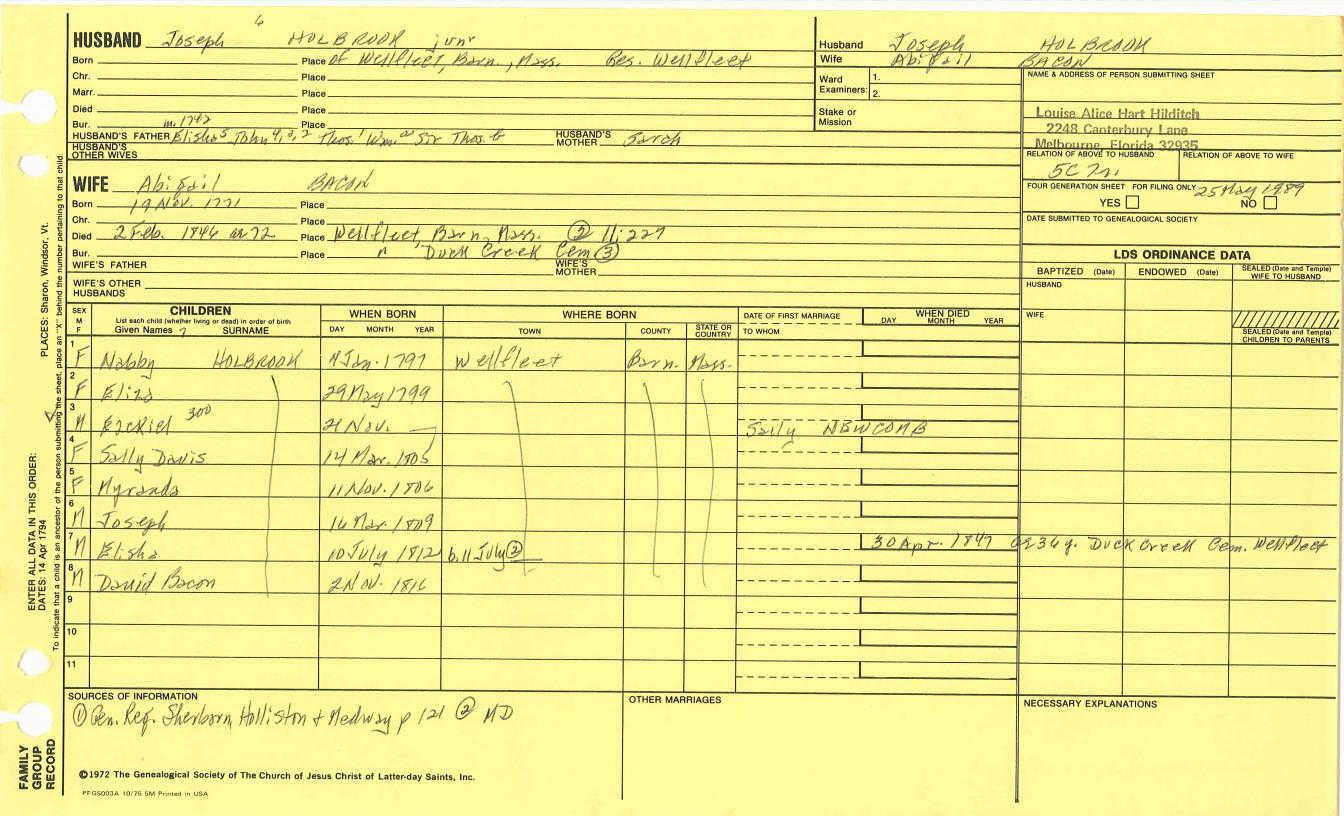 6
HUSBAND Joseph HOLBROOK junr
Born Place of Wellfleet, Barn., Mass. Res. Wellfleet
Chr. Place
Marr. Place
Died Place
Bur. Place
HUSBAND'S FATHER Elisha 5 John 4, 3, 2 Thos. 1 Wm. Sir Thos. HUSBAND'S MOTHER Sarah
HUSBAND'S OTHER WIVES
WIFE Abigail BACON
Born 19 Nov. 1771 Place
Chr. Place
Died 2 Feb. 1846 ae 72 Place Wellfleet Barn, Mass. ② 11:227
Bur. Place " Duck Creek Cem ③
WIFE'S FATHER WIFE'S MOTHER
WIFE'S OTHER HUSBANDS
Husband Joseph HOLBROOK
Wife Abigail BACON
Ward Examiners: 1.
2.
Stake or Mission
NAME & ADDRESS OF PERSON SUBMITTING SHEET
Louise Alice Hart Hilditch
2248 Canterbury Lane
Melbourne, Florida 32935
RELATION OF ABOVE TO HUSBAND RELATION OF ABOVE TO WIFE
5C
FOUR GENERATION SHEET FOR FILING ONLY 25 May 1989
YES NO
DATE SUBMITTED TO GENEALOGICAL SOCIETY
LDS ORDINANCE DATA
BAPTIZED (Date) ENDOWED (Date) SEALED (Date and Temple) WIFE TO HUSBAND
HUSBAND
WIFE
SEALED (Date and Temple) CHILDREN TO PARENTS
SEX M F CHILDREN List each child (whether living or dead) in order of birth Given Names 7 SURNAME
WHEN BORN DAY MONTH YEAR
WHERE BORN TOWN COUNTY STATE OR COUNTRY
DATE OF FIRST MARRIAGE TO WHOM
WHEN DIED DAY MONTH YEAR
1 F Nabby HOLBROOK Jan. 1797 Wellfleet Barn. Mass.
2 F Eliza 29 May 1799
3 M Ezekiel 300 21 Nov. Sally NEWCOMB
4 F Sally Davis 14 Mar. 1805
5 F Myranda 11 Nov. 1806
6 M Joseph 16 Mar. 1809
7 M Elisha 10 July 1812 b. 11 July ② 30 Apr. 1847 ae 34 y. Duck Creek Cem. Wellfleet
8 M David Bacon 2 Nov. 1816
9
10
11
SOURCES OF INFORMATION
① Gen. Reg. Sherborn, Holliston & Medway p 121 ② MD
OTHER MARRIAGES
NECESSARY EXPLANATIONS
©1972 The Genealogical Society of The Church of Jesus Christ of Latter-day Saints, Inc.
PFGS003A 10/76 5M Printed in USA
FAMILY GROUP RECORD
ENTER ALL DATA IN THIS ORDER:
DATES: 14 Apr 1794 PLACES: Sharon, Windsor, Vt.
To indicate that a child is an ancestor of the person submitting the sheet, place an "X" behind the number pertaining to that child